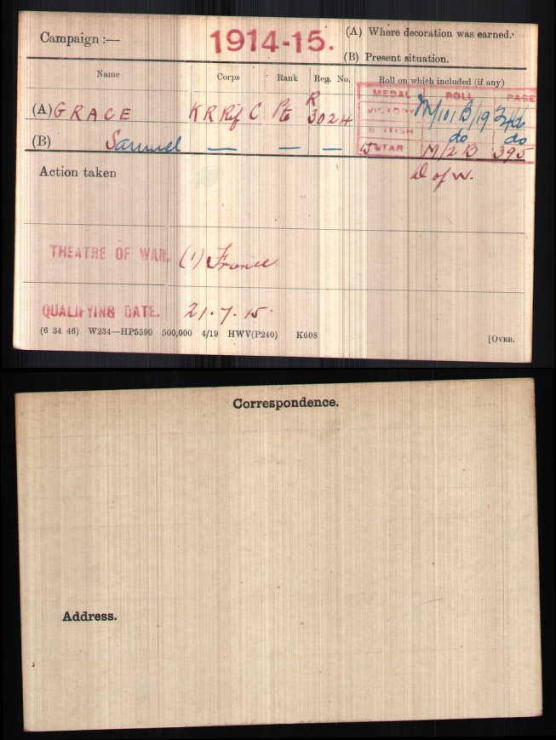 Campaign :— 1914-15. (A) Where decoration was earned.
(B) Present situation.
Name Corps Rank Reg. No. Roll on which included (if any)
MEDAL ROLL PAGE
(A) GRACE K R Rif C Pte R 3024 VICTORY M/101B/19
(B) Samuel — — — BRITISH do do
15 STAR M/2 B 395
Action taken D of W.
THEATRE OF WAR. (1) France
QUALIFYING DATE. 21.7.15.
(6 34 46) W234—HP5590 500,000 4/19 HWV(P240) K608 [OVER.
Correspondence.
Address.